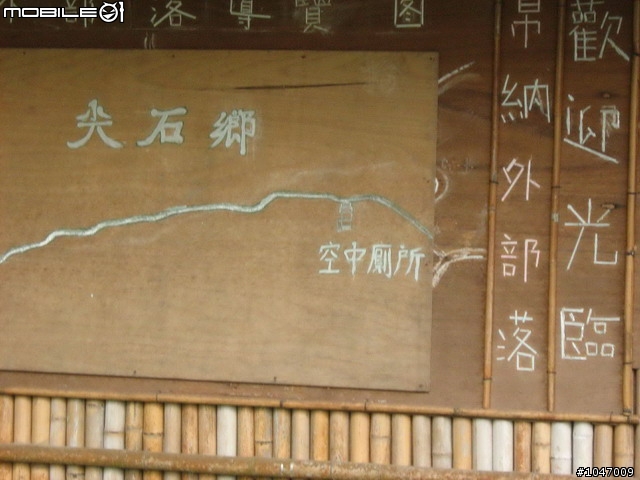 MOBILE01
部落導覽圖
尖石鄉
空中廁所
歡迎光臨
帛納外部落
#1047009